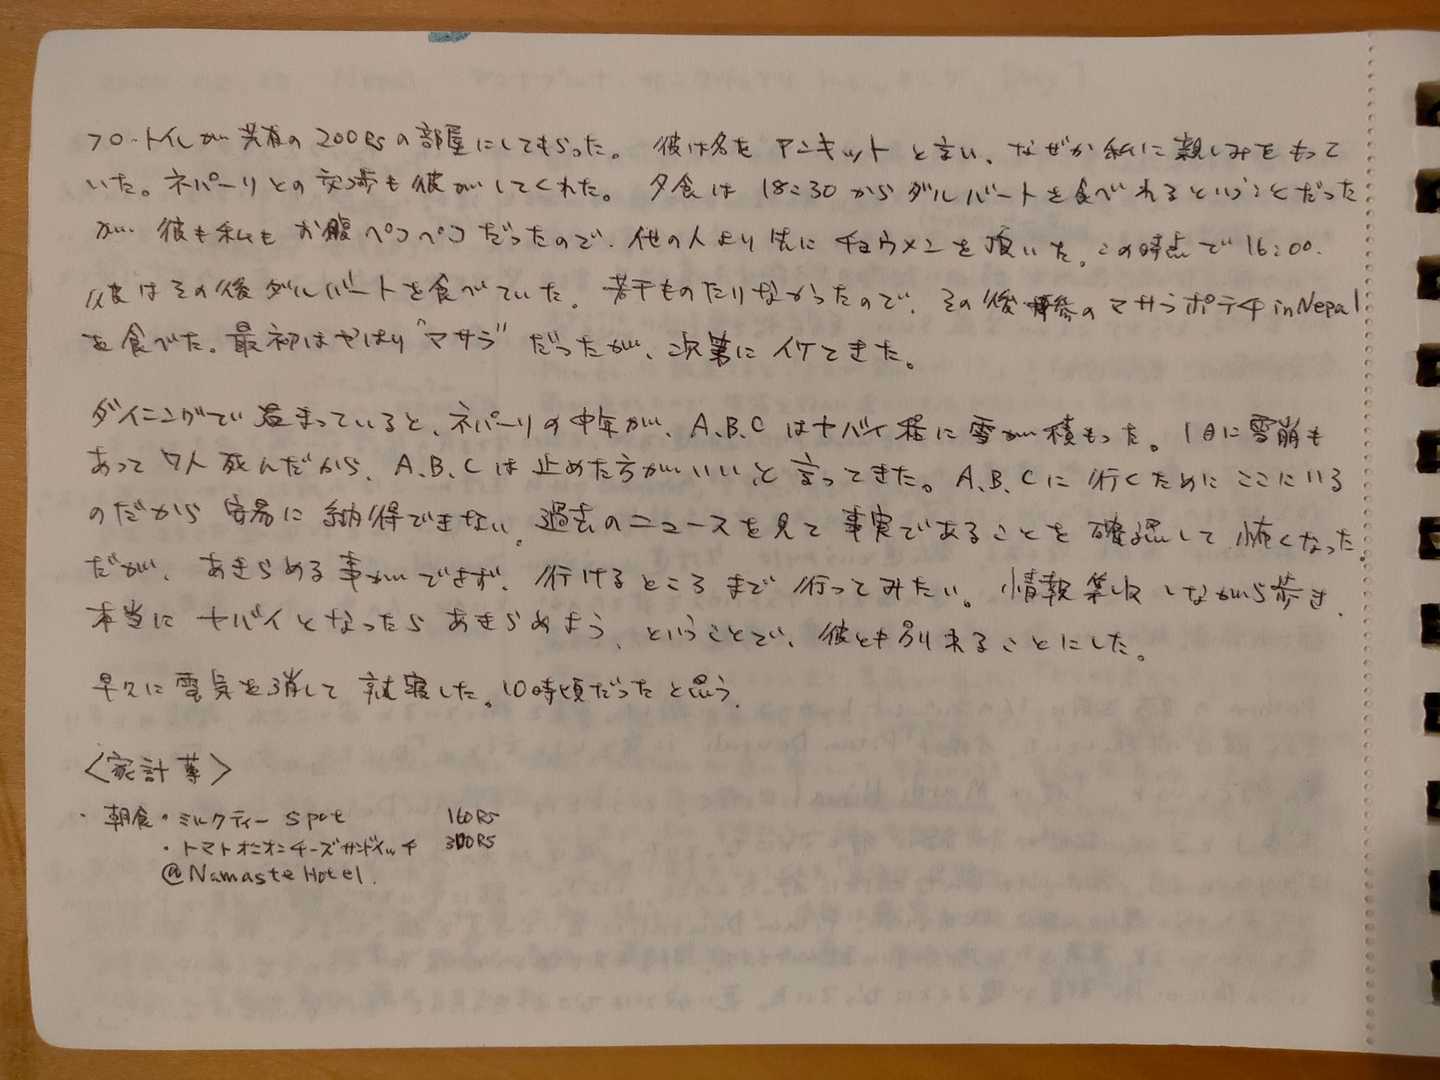 フロ・トイレが共有の200Rsの部屋にしてもらった。 彼は名をアンキットと言い、なぜか私に親しみをもって
いた。ネパーリとの交渉も彼がしてくれた。 夕食は18:30からダルバートを食べれるということだった
が、彼も私もお腹ペコペコだったので、他の人より先にチョウメンを頂いた。この時点で16:00.
彼はその後ダルバートを食べていた。 若干ものたりなかったので、その後のマサラポテチinNepal
を食べた。最初はやはり"マサラ"だったが、次第にイケてきた。
ダイニングで温まっていると、ネパーリの中年が、A.B.Cはヤバイ程に雪が積もった。1日に雪崩も
あって7人死んだから、A.B.Cは止めた方がいい、と言ってきた。A.B.Cに行くためにここにいる
のだから安易に納得できない。過去のニュースを見て事実であることを確認して怖くなった。
だが、あきらめる事ができず、行けるところまで行ってみたい。情報集収しながら歩き、
本当にヤバイとなったらあきらめよう、ということで、彼とも別れることにした。
早々に電気を消して就寝した。10時頃だったと思う.
〈家計簿〉
・朝食・ミルクティー spot 160Rs
・トマトオニオンチーズサンドイッチ 300Rs
@Namaste Hotel.